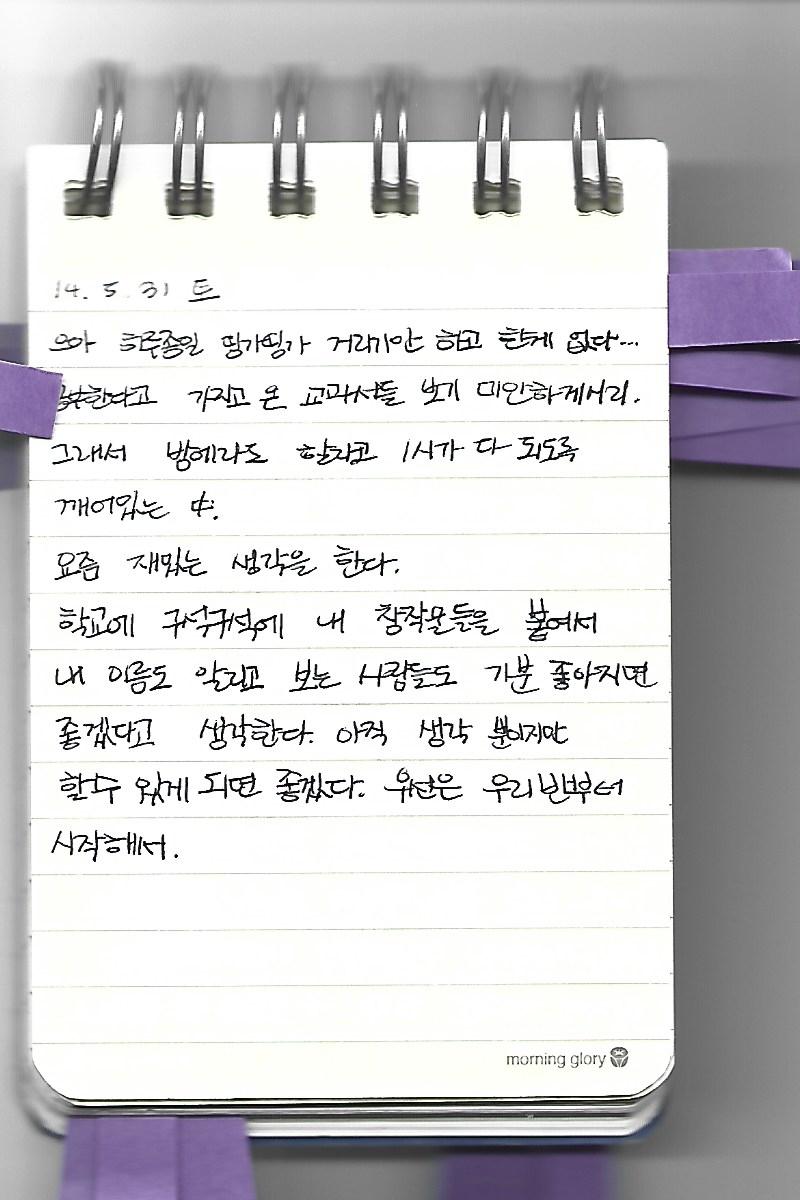 14. 5. 31 토
으아 하루종일 띵가띵가 거리기만 하고 한게 없다...
공부한다고 가지고 온 교과서들 보기 미안하게시리.
그래서 밤에라도 할라고 1시가 다 되도록
깨어있는 中.
요즘 재밌는 생각을 한다.
학교에 구석구석에 내 창작물들을 붙여서
내 이름도 알리고 보는 사람들도 기분 좋아지면
좋겠다고 생각한다. 아직 생각 뿐이지만
할수 있게 되면 좋겠다. 우선은 우리 반부터
시작해서.
morning glory